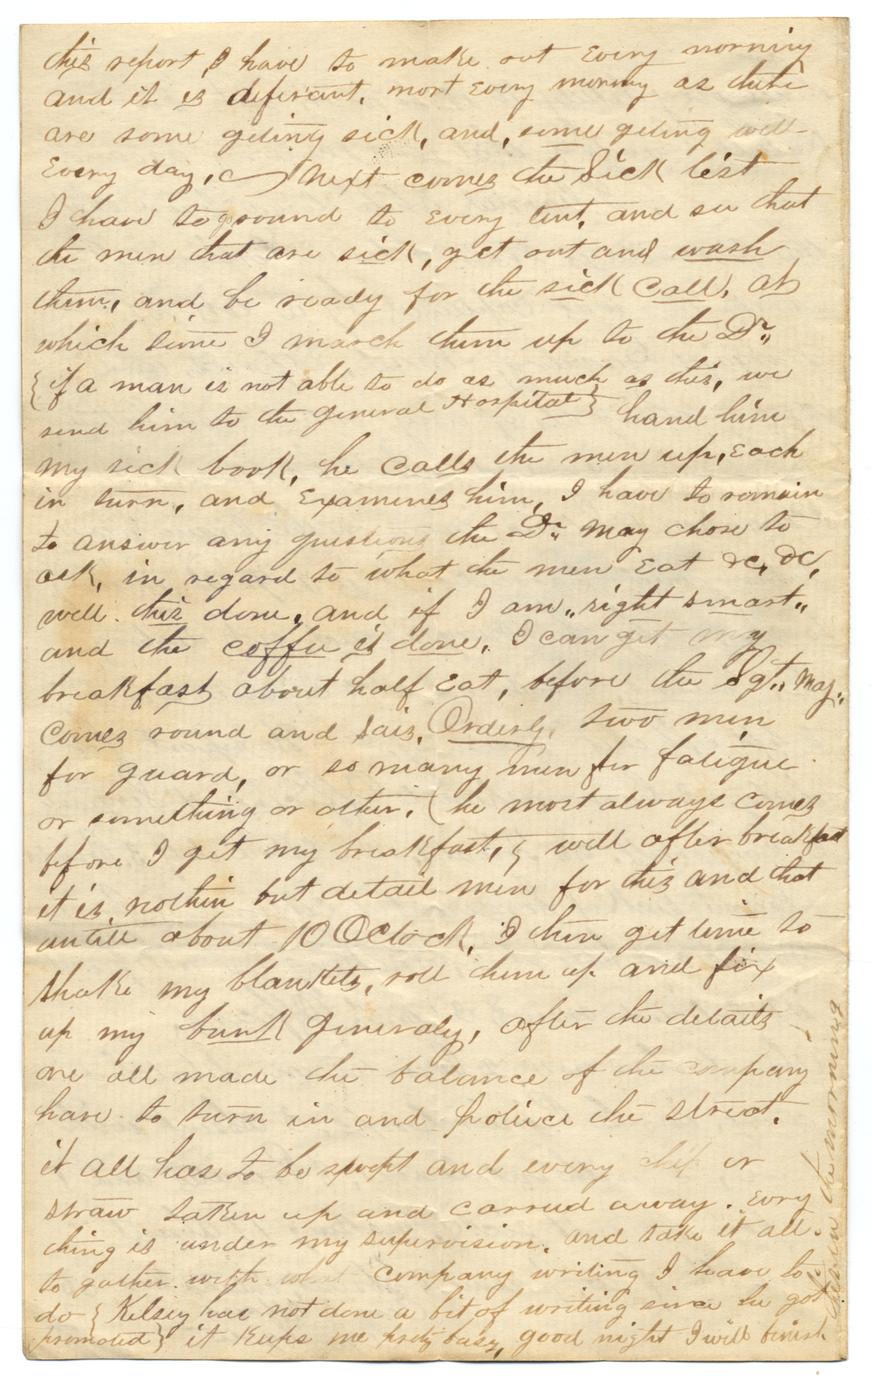 this report I have to make out Every morning
and it is diferant, most Every morning as there
are some geting sick, and, some geting well
Every day, Next comes the Sick list
I have to go round to Every tent, and see that
the men that are sick, get out and wash
them, and be ready for the sick Call, at
which time I march them up to the Dr,,
{if a man is not able to do as much as this, we
send him to the general Hospital} hand him
my sick book, he Calls the men up, Each
in turn, and Examines him, I have to remain
to answer any questions the Dr,, may chose to
ask, in regard to what the men Eat &c, &c,
well this done, and if I am ,,right smart,,
and the coffee is done, I can get my
breakfast about half Eat, before the Sgt,, Maj,,
Comes round and sais, Orderly, two men
for guard, or so many men for fatigue
or something or other, (he most always Comes
before I get my breakfast,) well after breakfast
it is nothin but detail men for this and that
untill about 10 OClock, I then get time to
shake my blankets, roll them up and fix
up my bunk generaly, after the details
are all made the balance of the company
have to turn in and Police the street,
it all has to be swept and every chip or
straw taken up and carried away. Evry
thing is under my supervision, and take it all
to gather with what company writing I have to
do {Kelsey has not done a bit of writing since he got
promoted} it Keeps me prety busy, good night I will finish
in the morning